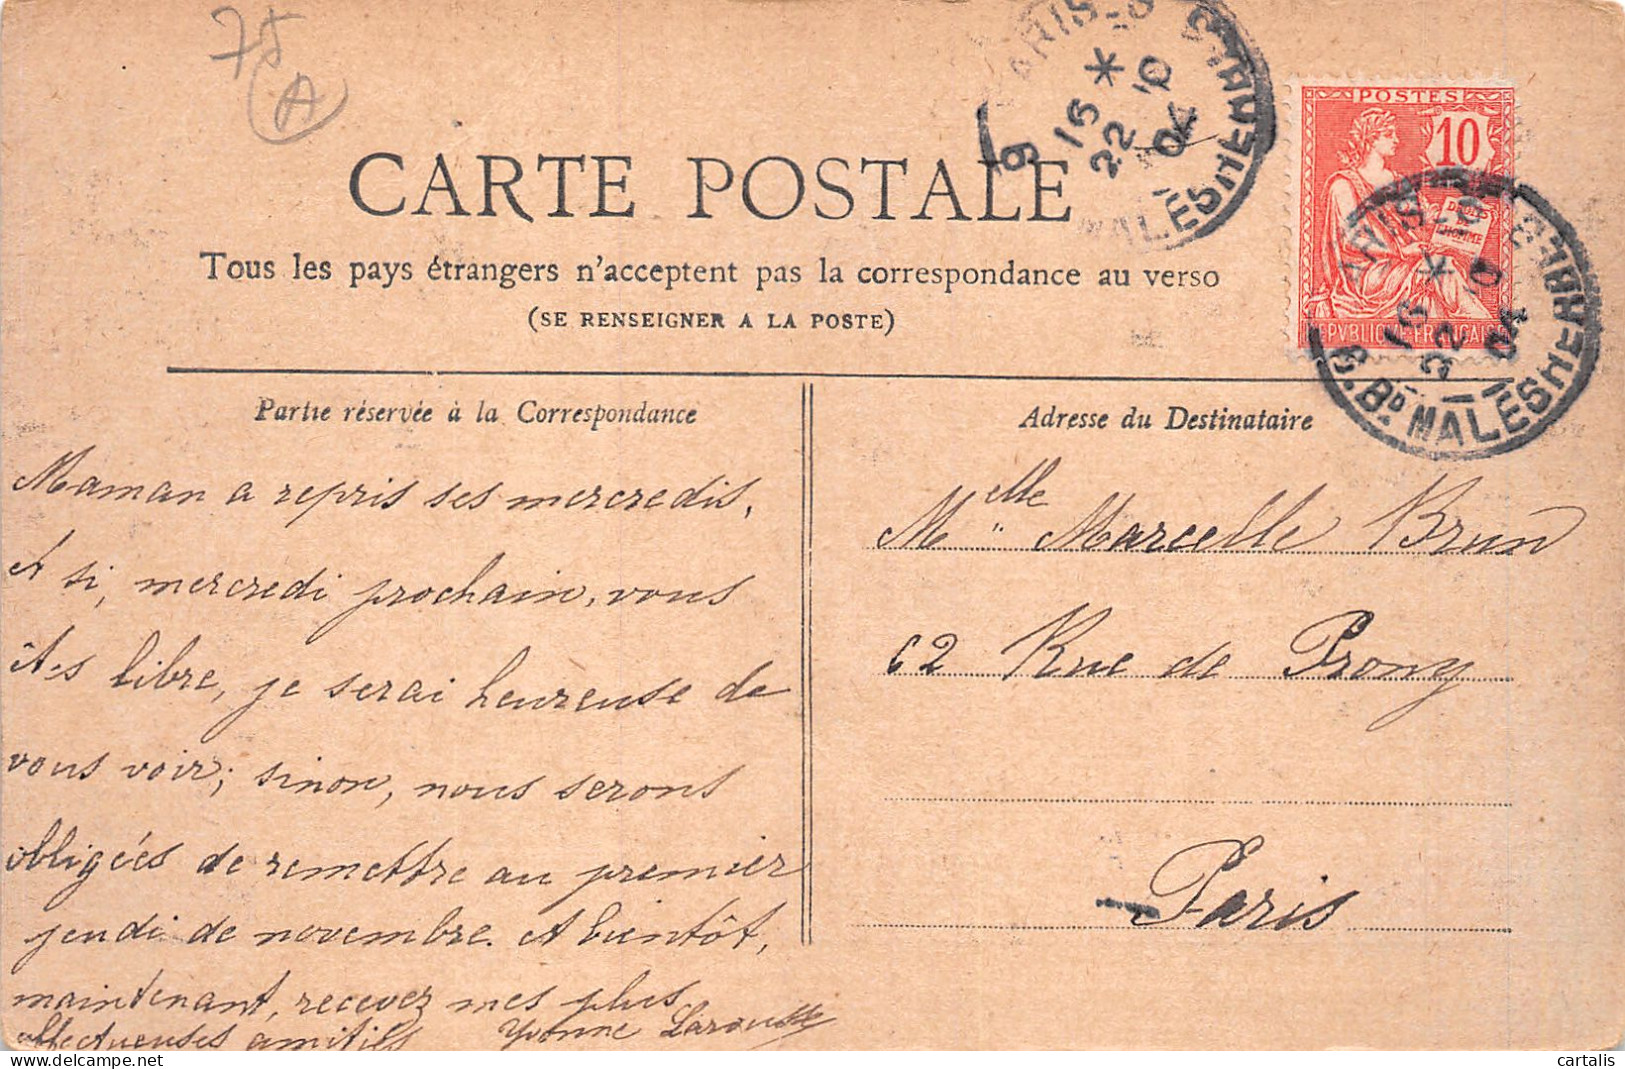 75
A
PARIS-9
16 *
22 10
04
9 Bd MALESHERBES
CARTE POSTALE
Tous les pays étrangers n'acceptent pas la correspondance au verso
(SE RENSEIGNER A LA POSTE)
POSTES
10
DROITS
DE
L'HOMME
REPVBLIQVE FRANÇAISE
PARIS
16 *
22 10
04
Bd MALESHERBES
Partie réservée à la Correspondance
Maman a repris ses mercredis,
et si, mercredi prochain, vous
êtes libre, je serai heureuse de
vous voir; sinon, nous serons
obligées de remettre au premier
jeudi de novembre. A bientôt,
maintenant, recevez mes plus
affectueuses amitiés Yvonne Larousse
Adresse du Destinataire
Melle Marcelle Brun
62 Rue de Prony
Paris
cartalis